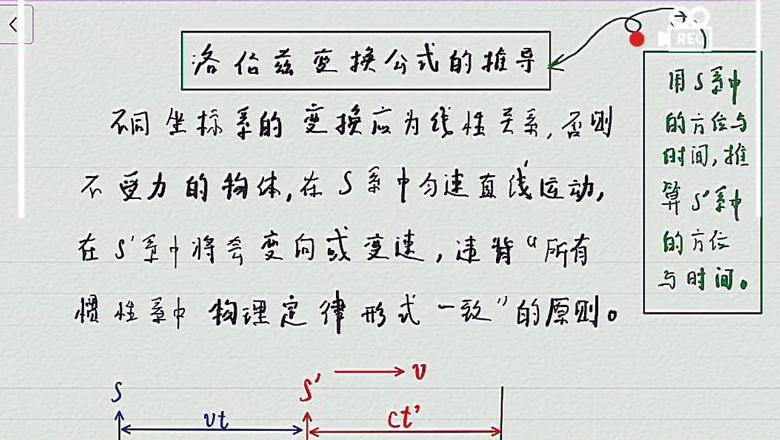 REC
洛伦兹变换公式的推导
不同坐标系的变换应为线性关系,否则
不受力的物体,在S系中匀速直线运动,
在S'系中将会变向或变速,违背“所有
惯性系中物理定律形式一致”的原则。
用S系中
的方位与
时间,推
算S'系中
的方位
与时间。
S
S'
v
vt
ct'